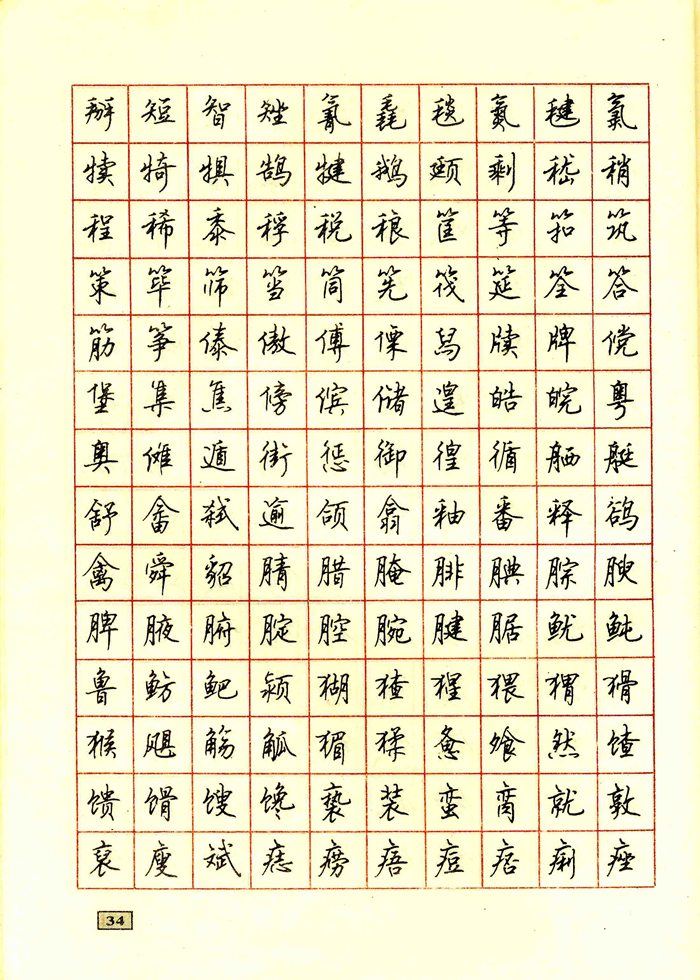 掰短智矬氰毳毯氮毽氯
犊犄犋鹄犍鹅颋剩嵇稍
程稀黍稃税稂筐等筘筑
策筚筛筜筒筅筏筵筌答
筋筝傣傲傅傈舄牍牌傥
堡集焦傍傧储遑皓皖粤
奥傩遁街惩御徨循舾艇
舒畲弑逾颌翕釉番释鹆
禽舜貂腈腊腌腓腆腴
脾腋腑腚腔腕腱腒鱿鲀
鲁鲂鲃颍猢猹猩猥猬猾
猴飓觞觚猸猱惫飧然馇
馈馉馊馋亵装蛮脔就敦
裒廋斌痣痨痦痘痞痢痤
34